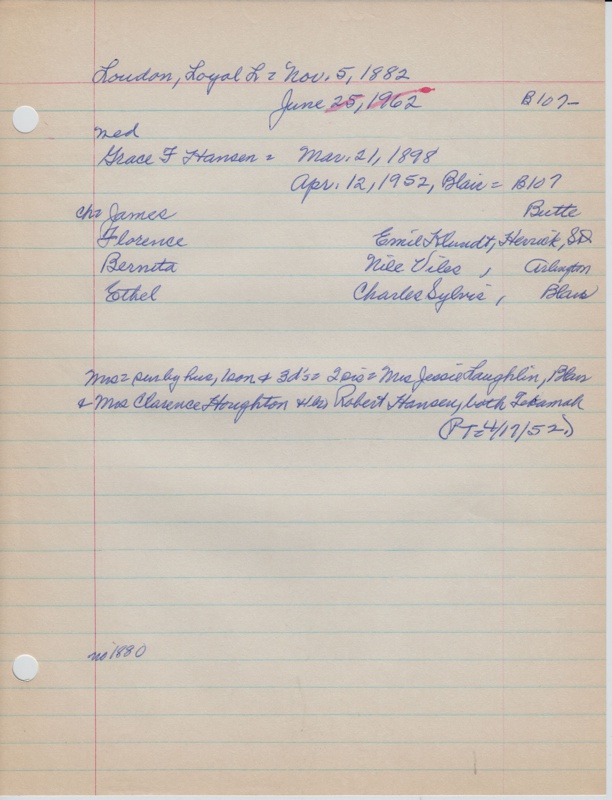 Loudon, Loyal L = Nov. 5, 1882
June 25, 1962 B107-
med
Grace F Hansen = Mar. 21, 1898
Apr. 12, 1952, Blair = B107
ch = James Butte
Florence Emil Klundt, Herrick, SD
Bernita Nile Viles, Arlington
Ethel Charles Sylvis, Blair
Mrs = sur by hus, 1 son & 3 d's = 2 sis = Mrs Jessie Laughlin, Blair
& Mrs Clarence Houghton & bro Robert Hansen, both Tekamah
(PT = 4/17/52.)
no 1880